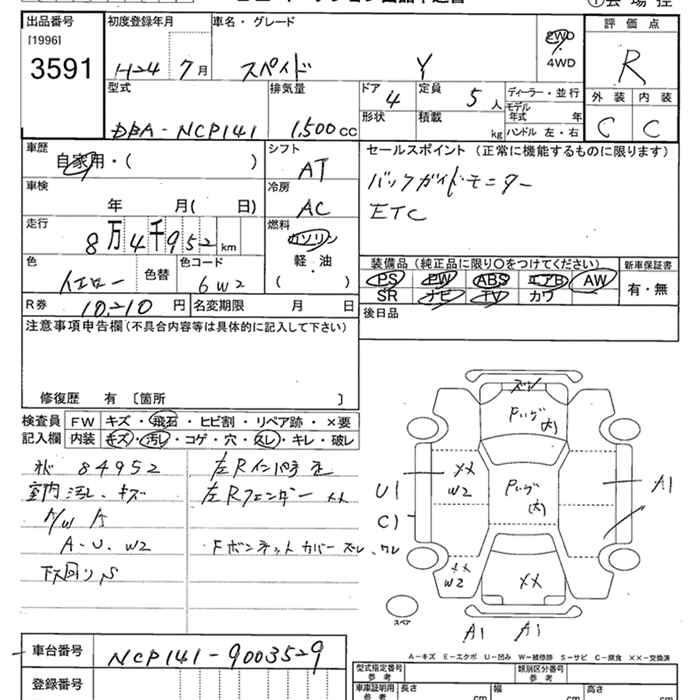 出品番号
[1996]
3591
初度登録年月
H24 7月
車名・グレード
スペイド Y
2WD
・
4WD
評価点
R
外装 内装
C C
型式
DBA-NCP141
排気量
1,500cc
ドア
4
定員
5人
形状
積載
kg
ディーラー・並行
モデル
年式 年
ハンドル 左・右
車歴
自家用・( )
シフト
AT
車検
年 月( 日)
冷房
AC
走行
8万4千952km
燃料
ガソリン
軽・油
( )
色
イエロー
色替
色コード
6W2
R券 10,210円
名変期限 月 日
セールスポイント(正常に機能するものに限ります)
バックガイドモニター
ETC
装備品(純正品に限り○をつけてください)
新車保証書
PS PW ABS エアB AW
SR ナビ TV カワ
有・無
後日品
注意事項申告欄(不具合内容等は具体的に記入して下さい)
修復歴 有〔箇所 〕
検査員
記入欄
FW キズ・飛石・ヒビ割・リペア跡・×要
内装 キズ・汚レ・コゲ・穴・スレ・キレ・破レ
84952
室内汚レ、キズ
A・U・W2
下回りS
左Rインパネ
左Rフェンダー ××
Fボンネットカバーズレ、ワレ
ズレ
××
W2
U1
C1
A1
××
W2
××
A1 A1
スペア
A-キズ E-エクボ U-凹み W-補修跡 S-サビ C-腐食 ××-交換済
車台番号 NCP141-9003529
登録番号
型式指定番号
参考
類別区分番号
参考
車庫証明用
参考
長さ cm
幅 cm
高さ cm